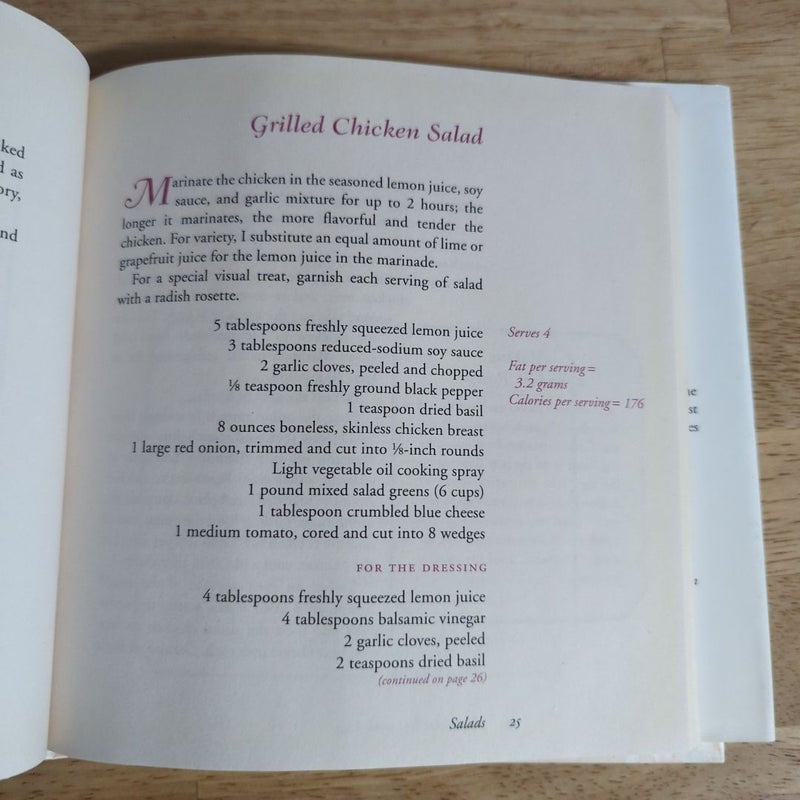 ked
d as
ory,
nd
Grilled Chicken Salad
Marinate the chicken in the seasoned lemon juice, soy
sauce, and garlic mixture for up to 2 hours; the
longer it marinates, the more flavorful and tender the
chicken. For variety, I substitute an equal amount of lime or
grapefruit juice for the lemon juice in the marinade.
For a special visual treat, garnish each serving of salad
with a radish rosette.
5 tablespoons freshly squeezed lemon juice
3 tablespoons reduced-sodium soy sauce
2 garlic cloves, peeled and chopped
⅛ teaspoon freshly ground black pepper
1 teaspoon dried basil
8 ounces boneless, skinless chicken breast
1 large red onion, trimmed and cut into ⅛-inch rounds
Light vegetable oil cooking spray
1 pound mixed salad greens (6 cups)
1 tablespoon crumbled blue cheese
1 medium tomato, cored and cut into 8 wedges
Serves 4
Fat per serving=
3.2 grams
Calories per serving= 176
FOR THE DRESSING
4 tablespoons freshly squeezed lemon juice
4 tablespoons balsamic vinegar
2 garlic cloves, peeled
2 teaspoons dried basil
(continued on page 26)
Salads 25
st
es